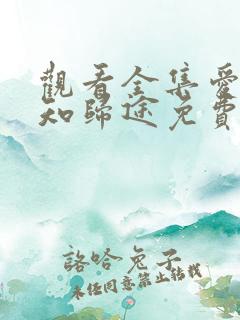 觀看全集愛
知歸途免費
諮哈兔子
未經同意禁止轉載